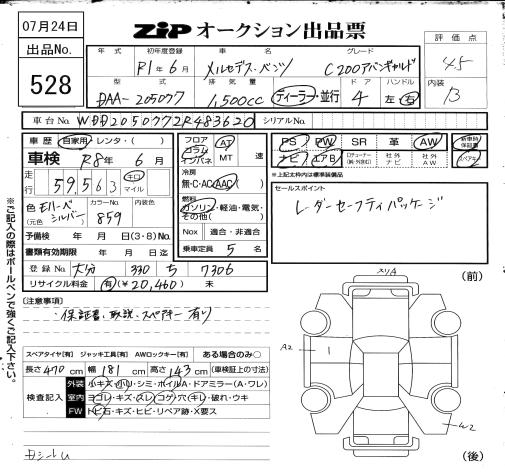 07月24日
ZIP オークション出品票
出品No.
528
年式 初年度登録 車名 グレード
R1年6月 メルセデス・ベンツ C200アバンギャルド
評価点
4.5
型式 排気量 ドア ハンドル
DAA-205077 1,500cc ディーラー・並行 4 左・右
内装
B
車台No. WDD2050772R483620 シリアルNo.
車歴 自家用・レンタ( )
車検 R8年6月
走行 59,563 キロ マイル
色 モハーベシルバー (元色 ) カラーNo. 859 内装色
予備検 年 月 日(3・8)No.
書類有効期限 年 月 日迄
登録No. 大分 330 ち 7306
リサイクル料金 有(¥20,460) 未
フロア コラム インパネ AT MT 速
冷房 無・C・AC・AAC
燃料 ガソリン・軽油・電気・その他( )
Nox 適合・非適合
乗車定員 5 名
PS PW SR 革 AW
ナビ エアB ロクチューナー(純・外対応) 社外ナビ 社外AW
新車時保証書
スペアキー
※上記太枠内は標準装備品
セールスポイント
レーダーセーフティパッケージ
[注意事項]
・保証書、取説、スペアキー有り
スペアタイヤ[有] ジャッキ工具[有] AWロックキー[有] ある場合のみ○
長さ470cm 幅181cm 高さ143cm (車検証上の寸法)
検査記入
外装 小キズ・小凹・シミ・ホイルA・ドアミラー(A・ワレ)
室内 ヨゴレ・キズ・スレ・コゲ・穴・キレ・破れ・ウキ
FW トビ石・キズ・ヒビ・リペア跡・X要ス
※ご記入の際はボールペンで強くご記入下さい。
(前)
スリA
A2
1
W2
(後)